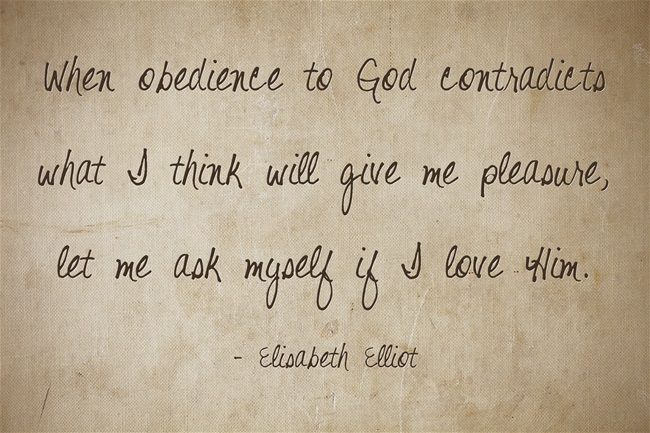 When obedience to God contradicts
what I think will give me pleasure,
let me ask myself if I love Him.
- Elisabeth Elliot